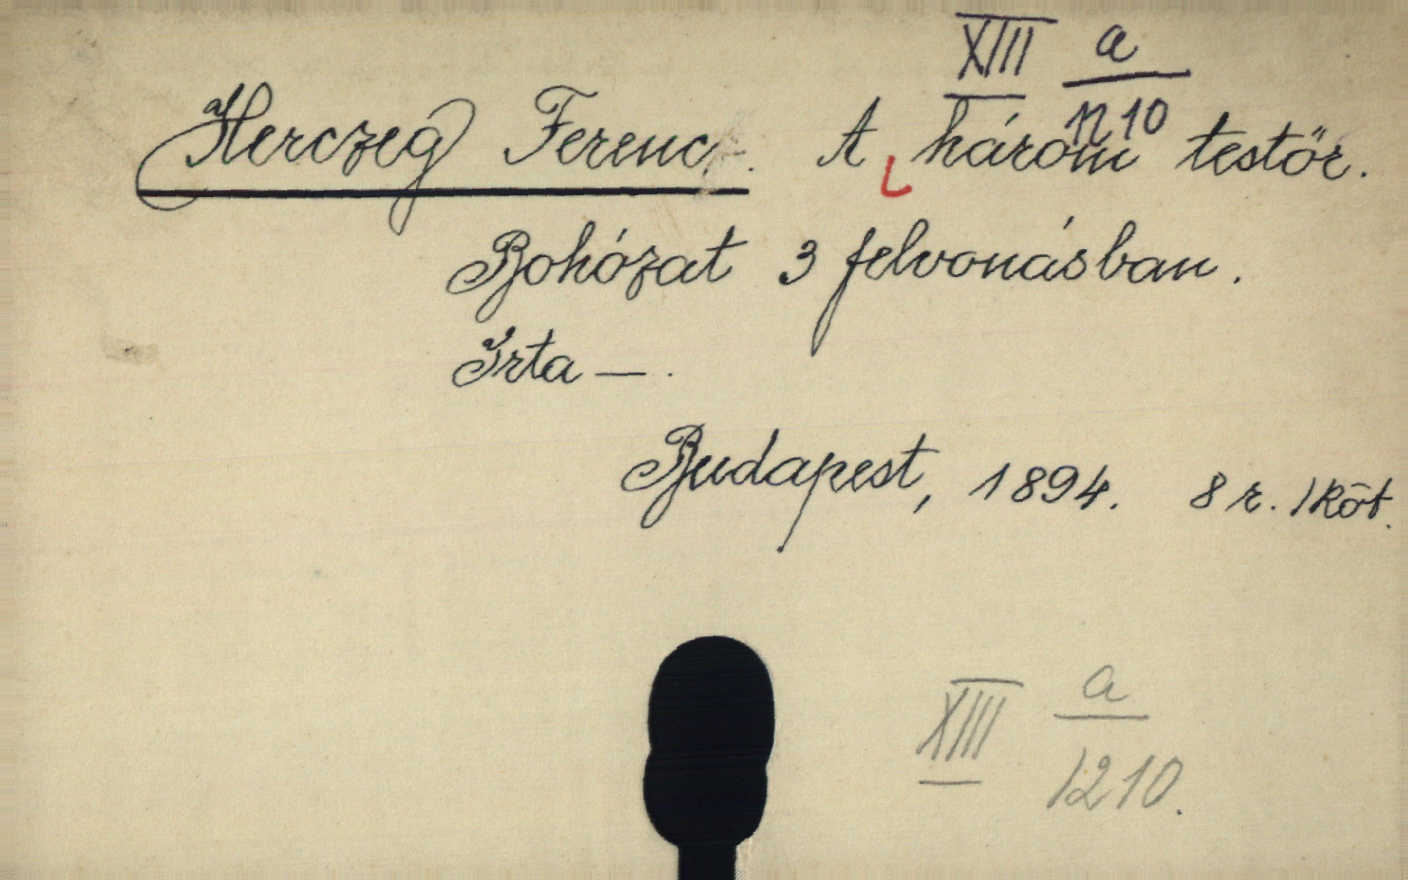 XIII a
1210
Herczeg Ferenc. A három testőr.
Bohózat 3 felvonásban.
Irta — .
Budapest, 1894. 8 r. 1 köt.
XIII a
1210.